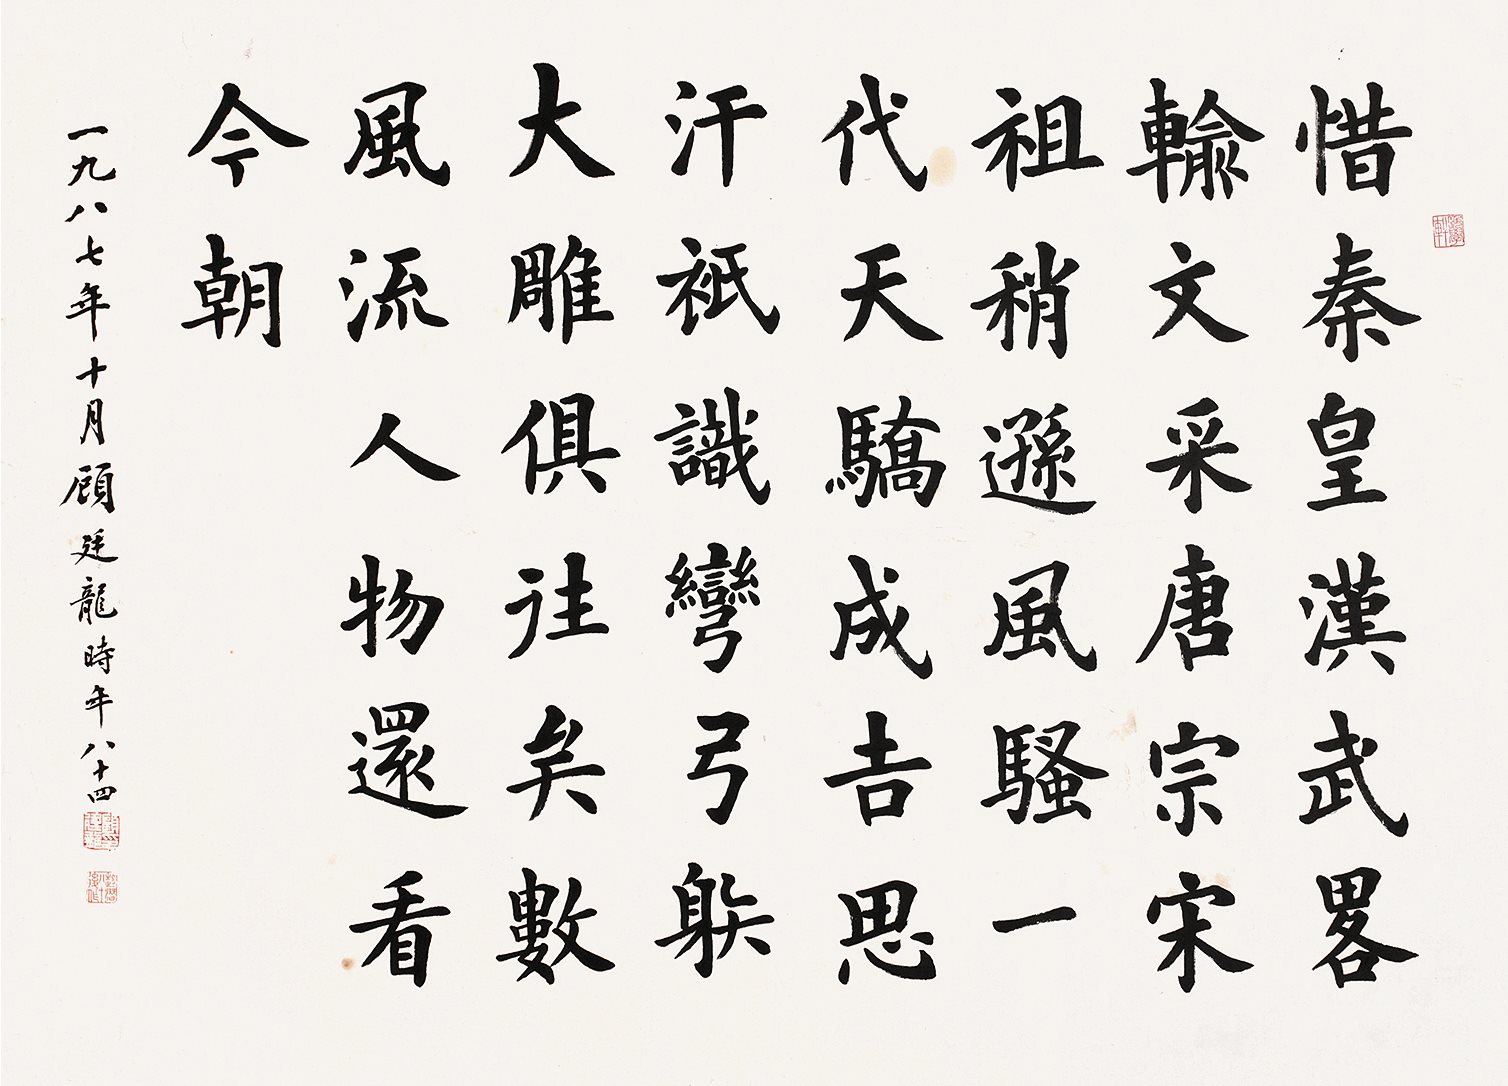 惜秦皇漢武畧
輸文采唐宗宋
祖稍遜風騷一
代天驕成吉思
汗衹識彎弓躲
大雕俱往矣數
風流人物還看
今朝
一九八七年十月顧廷龍時年八十四